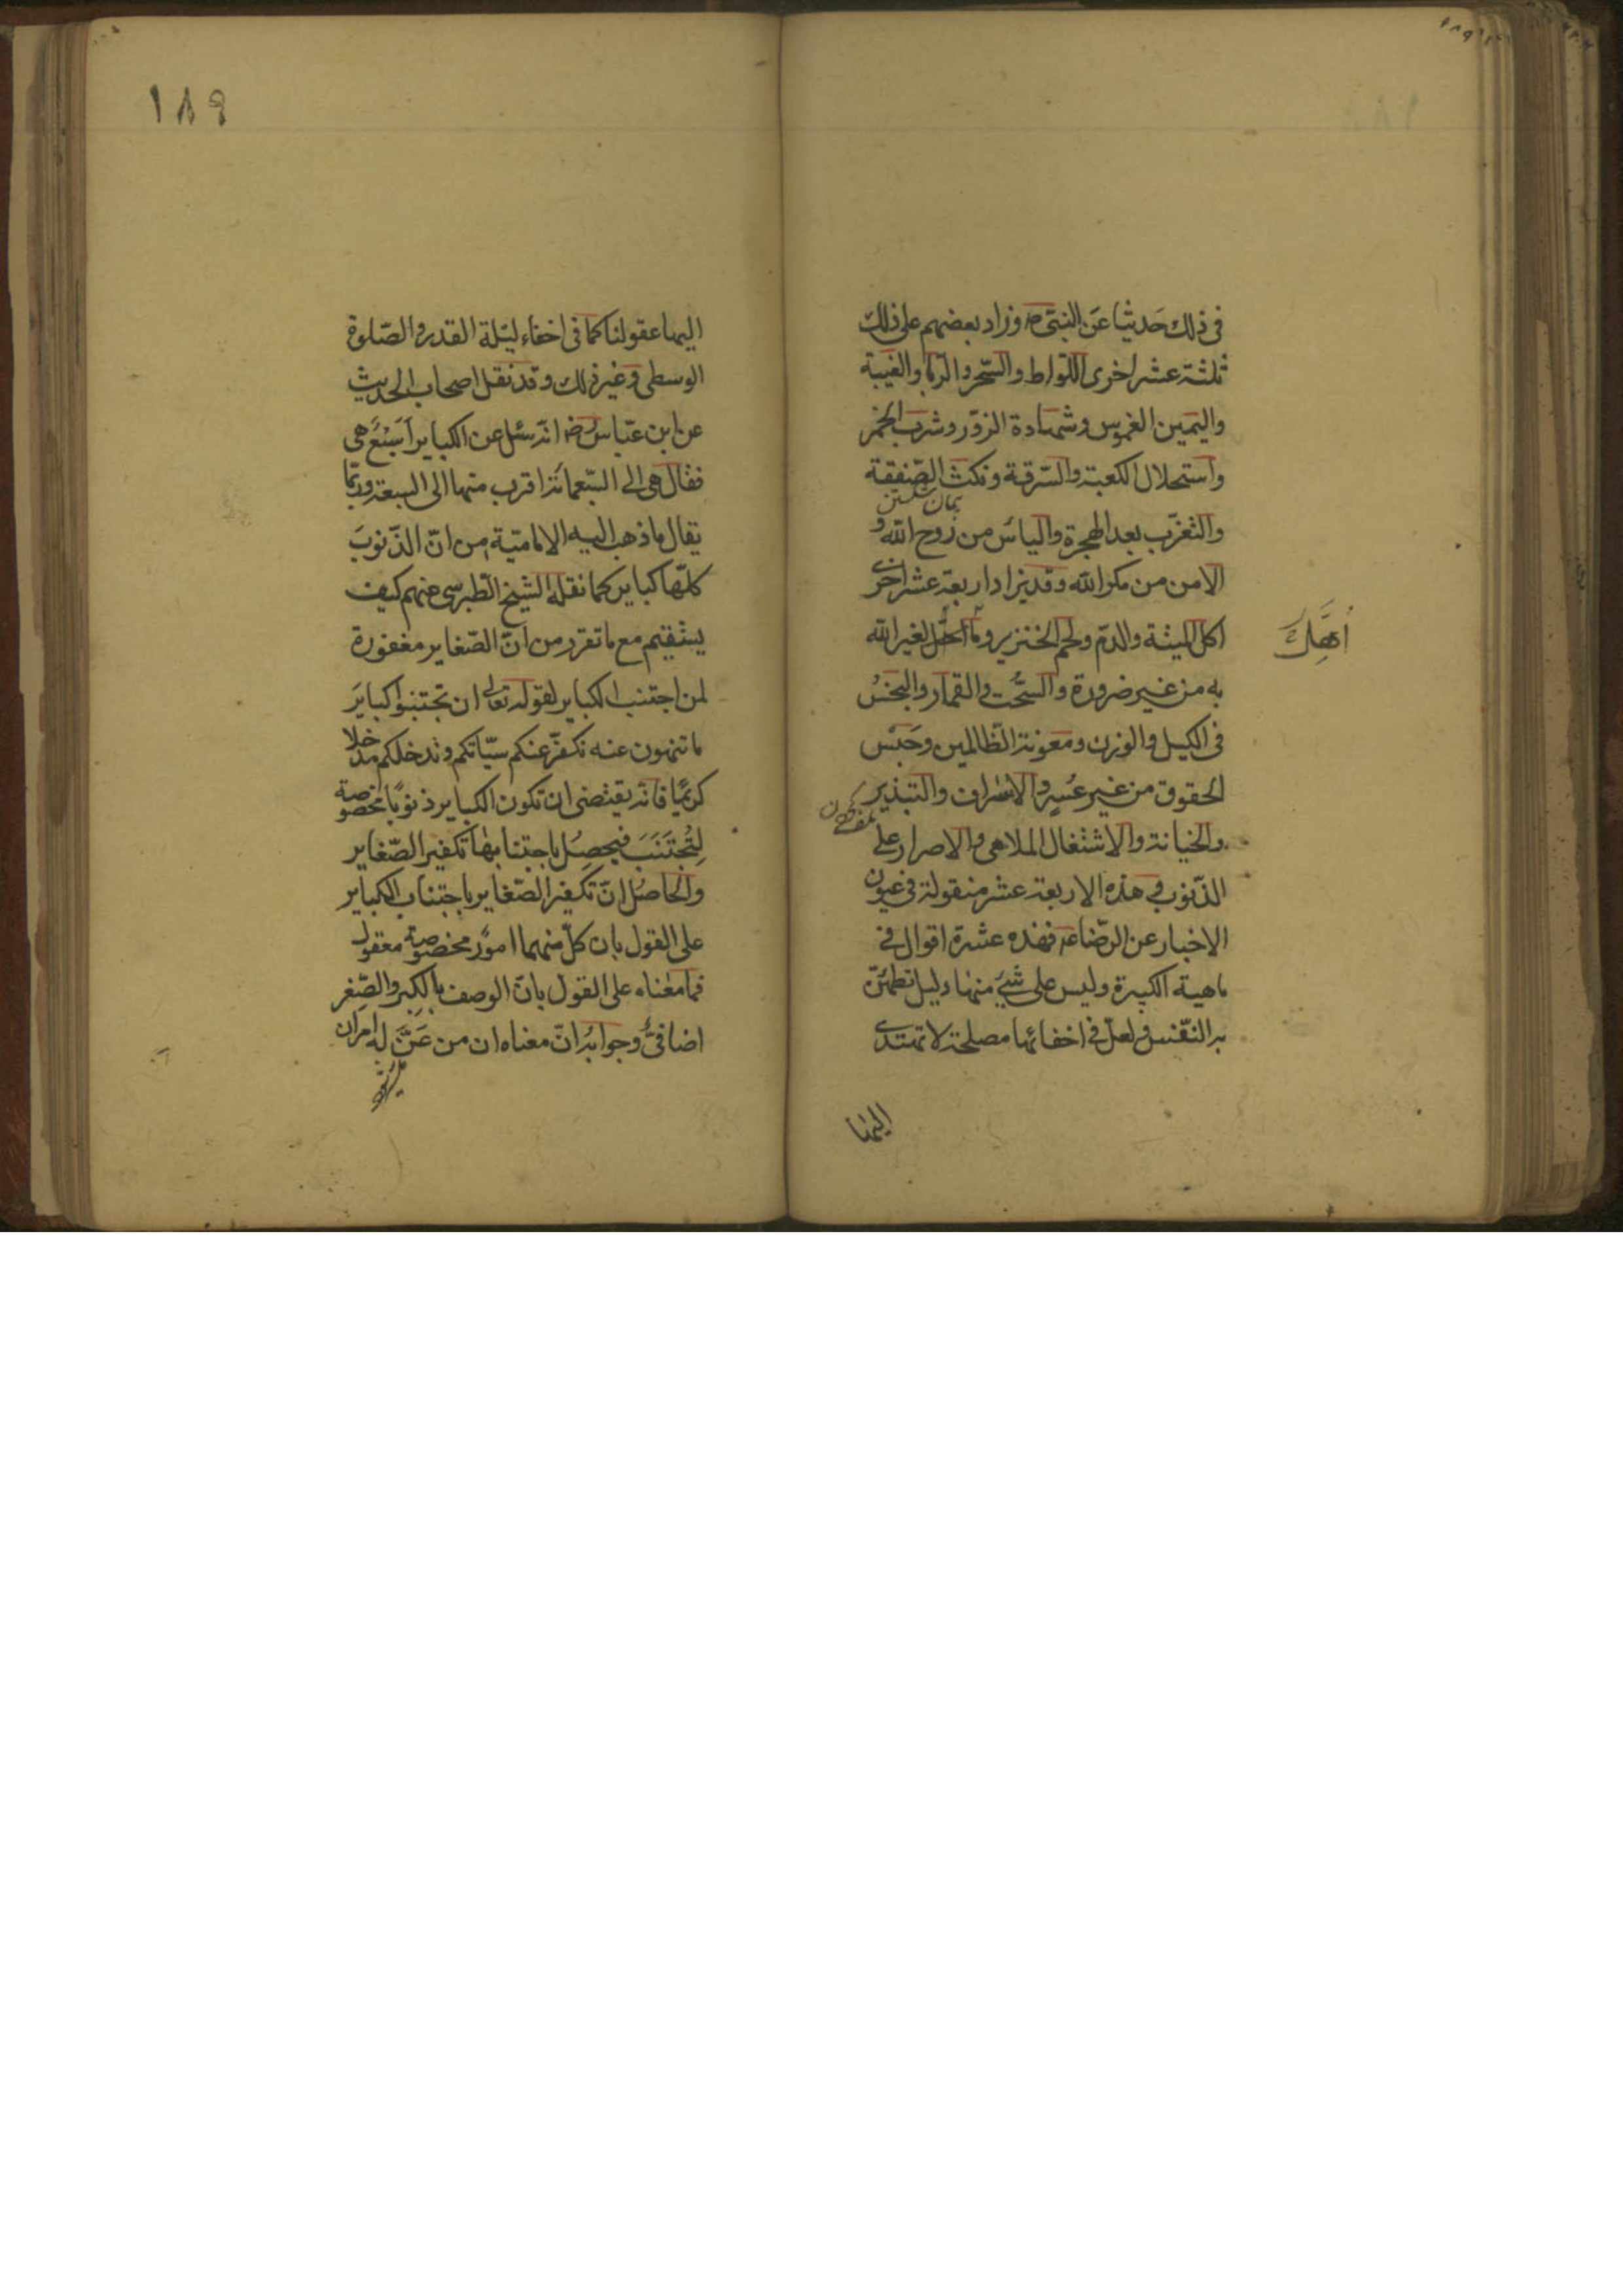 في ذلك حَديثا عَن النبي ص وزاد بعضهم على ذلك
ثلثة عشر اخرى اللواط والسّحر والرّبا والغيبة
واليمين الغموس وشهادة الزّور وشرب الخمر
واستحلال الكعبة والسّرقة ونكث الصّفقة
والتغرّب بعد الهجرة والياس من رَوح الله و
الامن من مكر الله وقد يزاد اربعة عشر اخرى
اكل الميتة والدّم ولحم الخنزير وما اُحلّ لغير الله
اُهِلَّ
به من غير ضرورة والسُّحت والقمار والبخس
في الكيل والوزن ومعونة الظالمين وحَبْس
الحقوق من غير عُسرٍ والاسراف والتبذير
والخيانة والاشتغال الملاهي والاصرار على
الذّنوب وهذه الاربعة عشر منقولة في عيون
الاخبار عن الرّضا ع فهذه عشرة اقوال في
ماهية الكبيرة وليس على شيء منها دليل تطمئنّ
به النّفس ولعلّ في اخفائها مصلحة لا تهتدي
اليها
١٨٩
اليها عقولنا كما في اخفاء ليلة القدر والصّلوة
الوسطى وغير ذلك وقد نقل اصحاب الحديث
عن ابن عبّاس رض انّه سئل عن الكباير اَسَبْعٌ هي
فقال هي الى السّبعمائة اقرب منها الى السبعة وربّما
يقال ما ذهب اليه الاماميّة من انّ الذّنوبَ
كلّها كباير كما نقله الشيخ الطبرسي عنهم كيف
يستقيم مع ما تقرر من انّ الصّغاير مغفورة
لمن اجتنب الكباير لقوله تعالى ان تجتنبوا كبايَر
ما تنهون عنه نكفّر عنكم سيّاتكم وندخلكم مدخلا
كريمًا فانّه يقتضي ان تكون الكباير ذنوبًا مخصوصة
لِتُجْتَنَبَ فيحصل باجتنابها تكفير الصّغاير
والحاصل انّ تكفير الصّغاير باجتناب الكباير
على القول بان كلّ منهما امورٌ مخصوصة معقول
فما معناه على القول بانّ الوصف بالكِبر والصِّغر
اضافيٌّ وجوابه انّ معناه ان من عَنَّ له امران